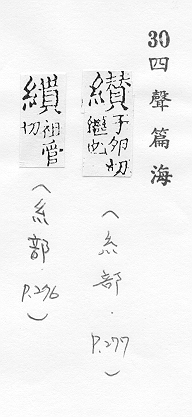 30四聲篇海
纉子卵切
繼也
(糸部.P.277)
祖管
切
(糸部.P.276)